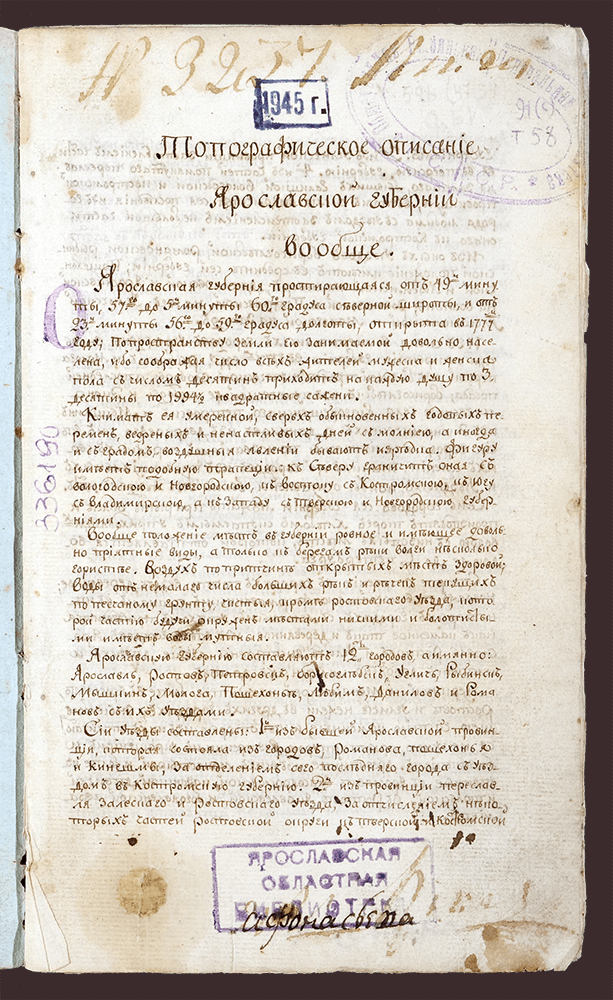 № 3237.
1945 г.
91(с)
Т 58
Топографическое описаніе
Ярославской губерніи
вообще.
Ярославская губернія простирающаяся отъ 49й мину
ты, 57го до 5й минуты 60го градуса северной широты, и отъ
23й минуты 56го до 59го градуса долготы, открыта въ 1777
году; По пространству земли ею занимаемой довольно насе
лена, ибо соображая число всѣхъ жителей мужеска и женска
пола съ числомъ десятинъ приходитъ на каждую душу по 3.
десятины по 1994½ квадратные сажени.
Климатъ ея умеренной, сверхъ обыкновенныхъ годовыхъ пе
ременъ, ведреныхъ и ненастливыхъ дней съ молніею, а иногда
и съ градомъ, воздушныя явленіи бываютъ изредка. Фигуру
имѣетъ подобную трапеціи: къ Северу граничитъ оная съ
вологодскою и Новогородскою, къ востоку съ Костромскою, къ югу
съ Владимирскою, а къ Западу съ Тверскою и Новогородскою губер
ніями.
Вообще положеніе мѣстъ въ губерніи ровное и имѣющее доволь
но пріятные виды, а только по берегамъ реки волги несколько
гористые. Воздухъ по причине открытыхъ мѣстъ здоровой;
Воды отъ немалаго числа большихъ рѣкъ и речекъ текущихъ
по песчаному грунту чистыя, кроме ростовскаго уезда, кото
рой частію будучи окруженъ местами низкими и болотисты
ми имѣетъ воды мутныя.
Ярославскую губернію составляютъ 12ть городовъ, а имянно:
Ярославль, Ростовъ, Петровскъ, Борисоглебскъ, Угличъ, Рыбинскъ,
Мышкинъ, Молога, Пошехонье, Любимъ, Даниловъ и Рома
новъ съ ихъ уездами.
Сіи уезды составлены: 1е изъ бывшей Ярославской провин
ціи, которая состояла изъ городовъ, Романова, пошехонья
и Кинешмы, за отделеніемъ сего последняго города съ уез
домъ въ Костромскую губернію. 2е изъ провинціи переслав
ля Залескаго и Ростовскаго уезда, за отчисленіемъ неко
торыхъ частей Ростовской округи къ тверской и Костромской
336190
ЯРОСЛАВСКАЯ
ОБЛАСТНАЯ
БИБЛИОТЕК
афонасьева